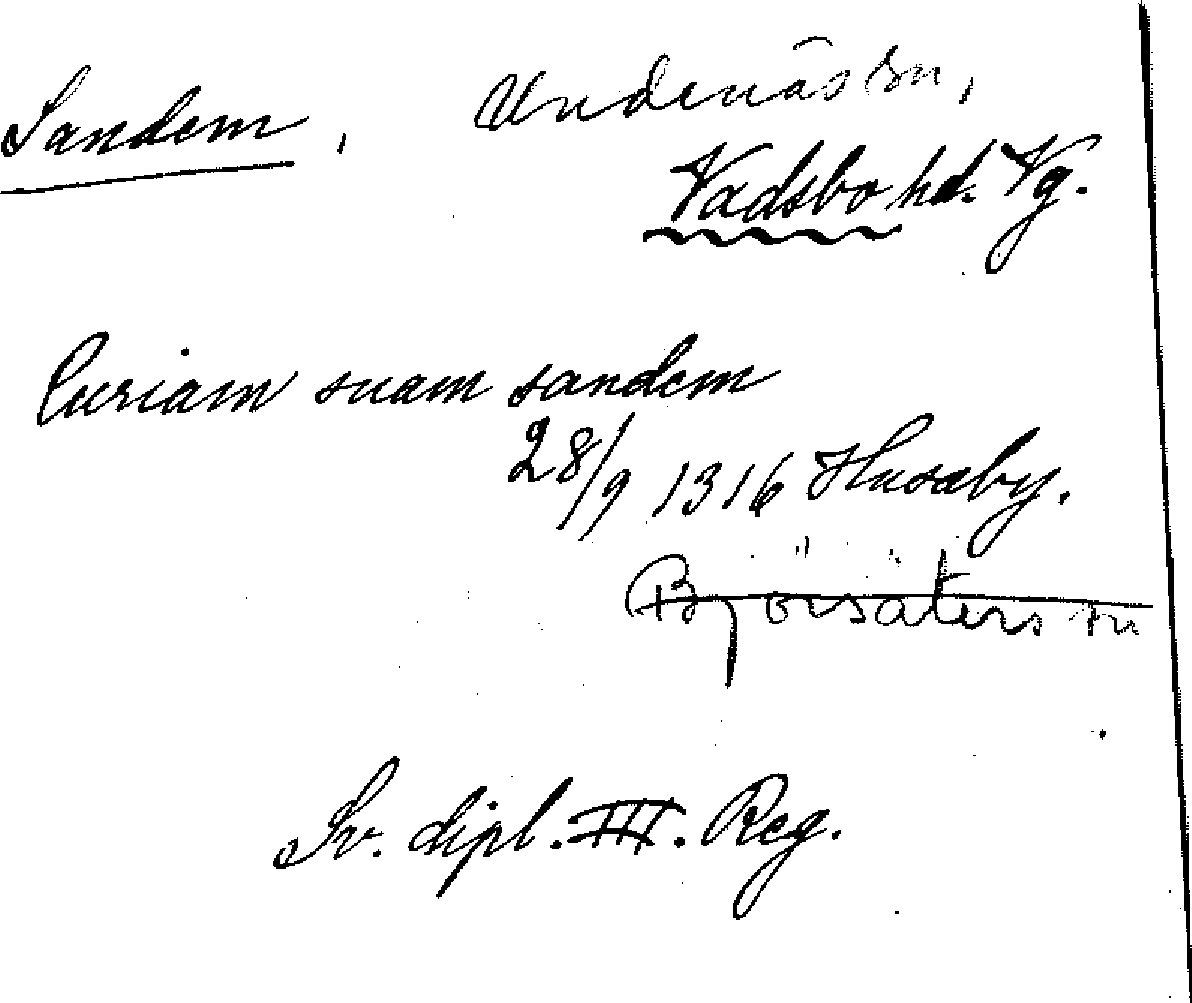 Sandem, Undenäs sn,
Vadsbo hd. Vg.
Curiam suam sandem
28/9 1316 Husaby.
Björsäters sn
Sv. dipl. III. Reg.